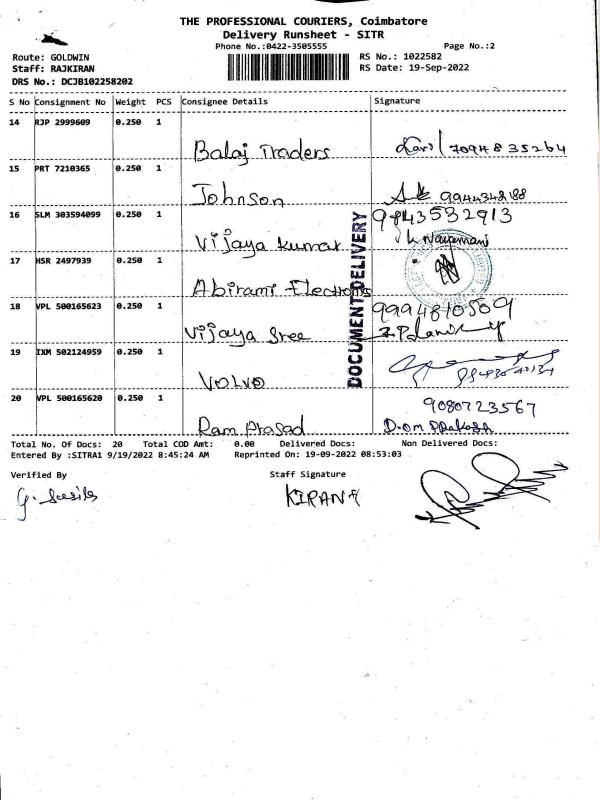 THE PROFESSIONAL COURIERS, Coimbatore
Delivery Runsheet - SITR
Phone No.:0422-3505555 Page No.:2
Route: GOLDWIN RS No.: 1022582
Staff: RAJKIRAN RS Date: 19-Sep-2022
DRS No.: DCJB102258202
S No Consignment No Weight PCS Consignee Details Signature
14 RJP 2999609 0.250 1
Balaj Traders 7094835264
15 PRT 7210365 0.250 1
Johnson 9944342188
16 SLM 303594099 0.250 1 9843532913
Vijaya kumar
17 HSR 2497939 0.250 1
Abirami Electronics
18 VPL 500165623 0.250 1 9994810509
Vijaya Sree
19 IXM 502124959 0.250 1
VOLVO
20 VPL 500165620 0.250 1 9080723567
Ram Prasad D.OM PRakasH
DOCUMENT DELIVERY
Total No. Of Docs: 20 Total COD Amt: 0.00 Delivered Docs: Non Delivered Docs:
Entered By :SITRA1 9/19/2022 8:45:24 AM Reprinted On: 19-09-2022 08:53:03
Verified By Staff Signature
KIRAN